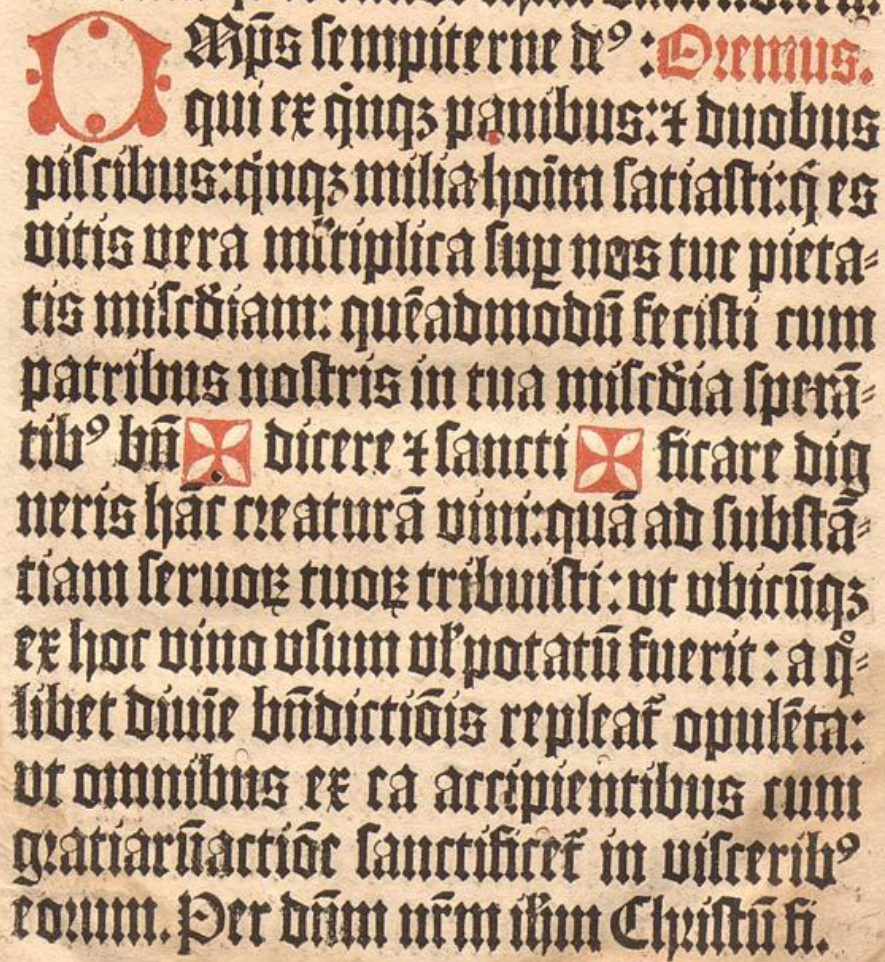 OMp̄s sempiterne deꝰ : Oremus.
qui ex q̇nqꝫ panibus: ⁊ duobus
piscibus: q̇nqꝫ milia hoīm satiasti: q̇ es
vitis vera ml̄tiplica suꝑ nos tue pieta⸗
tis misc̄diam: quēadmodū fecisti cum
patribus nostris in tua misc̄dia sperā⸗
tibꝰ bn̄ ✠ dicere ⁊ sancti ✠ ficare dig
neris hāc creaturā vini: quā ad substā⸗
tiam seruoꝝ tuoꝝ tribuisti: vt vbicūqꝫ
ex hoc vino vsum vl̓ potatū fuerit: a qͦ⸗
libet diuīe bn̄dictiōis repleat᷑ opulēta:
vt omnibus ex ea accipientibus cum
gratiarūactiōe sanctificet᷑ in visceribꝰ
eorum. Per dn̄m nr̄m ih̄m Christū fi.